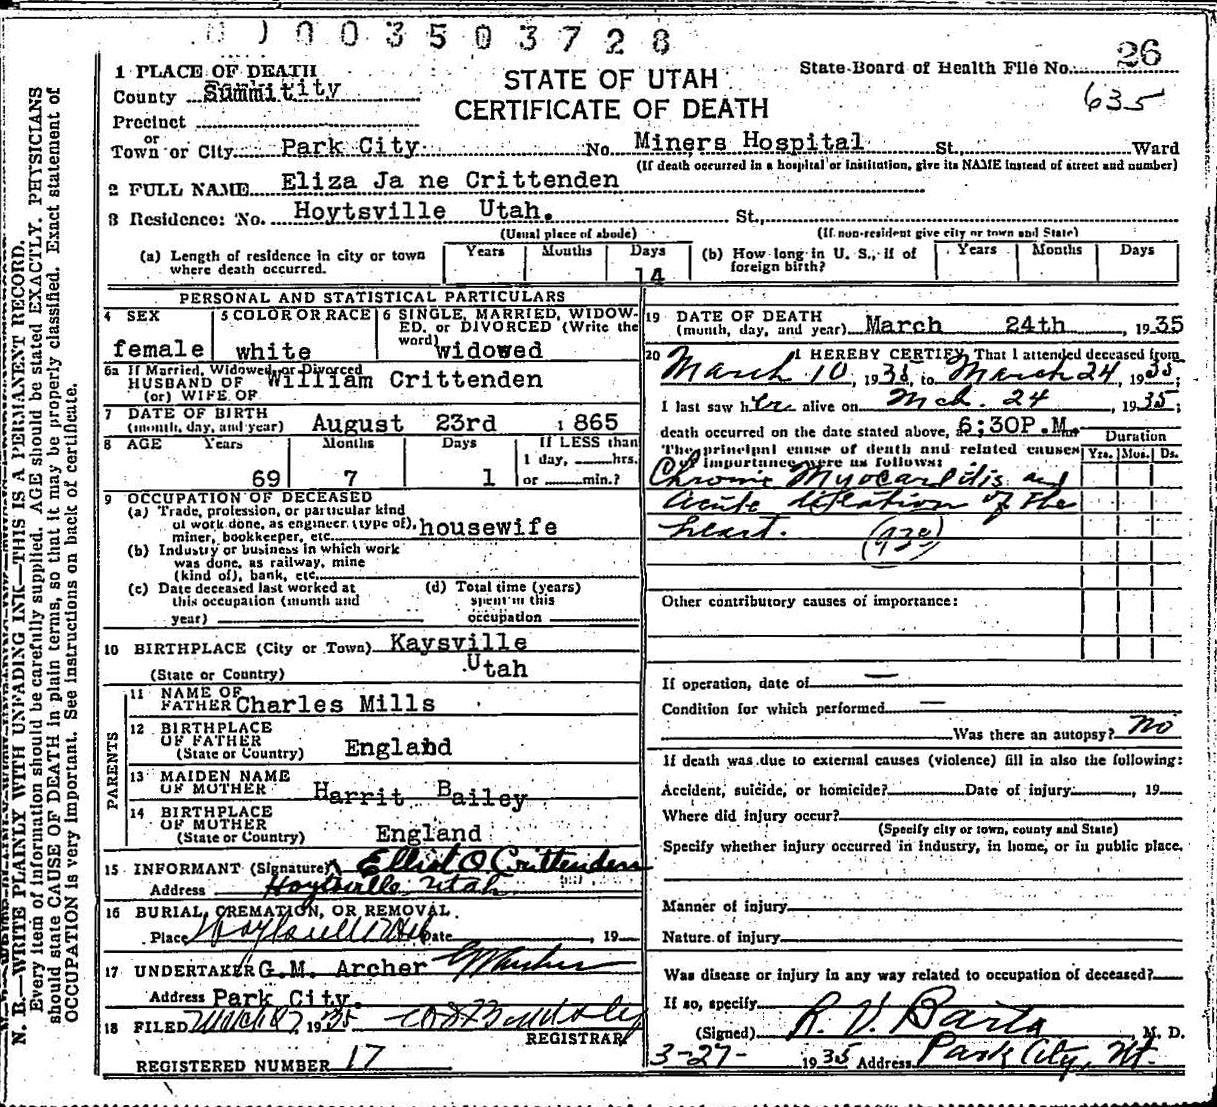 0003503728
26
635
1 PLACE OF DEATH
STATE OF UTAH
CERTIFICATE OF DEATH
State Board of Health File No.
County Summit
Precinct
or
Town or City Park City No. Miners Hospital St., Ward
(If death occurred in a hospital or institution, give its NAME instead of street and number)
2 FULL NAME Eliza Ja ne Crittenden
3 Residence: No. Hoytsville Utah. St.,
(Usual place of abode) (If non-resident give city or town and State)
(a) Length of residence in city or town where death occurred. Years Months Days 14
(b) How long in U. S., if of foreign birth? Years Months Days
PERSONAL AND STATISTICAL PARTICULARS
4 SEX female
5 COLOR OR RACE white
6 SINGLE, MARRIED, WIDOWED, or DIVORCED (Write the word) widowed
6a If Married, Widowed, or Divorced
HUSBAND OF William Crittenden
(or) WIFE OF
7 DATE OF BIRTH
(month, day, and year) August 23rd 1865
8 AGE Years Months Days If LESS than
69 7 1 1 day, hrs.
or min.?
9 OCCUPATION OF DECEASED
(a) Trade, profession, or particular kind
of work done, as engineer (type of),
miner, bookkeeper, etc. housewife
(b) Industry or business in which work
was done, as railway, mine
(kind of), bank, etc.
(c) Date deceased last worked at
this occupation (month and
year)
(d) Total time (years)
spent in this
occupation
10 BIRTHPLACE (City or Town) Kaysville
(State or Country) Utah
PARENTS
11 NAME OF
FATHER Charles Mills
12 BIRTHPLACE
OF FATHER
(State or Country) England
13 MAIDEN NAME
OF MOTHER Harrit Bailey
14 BIRTHPLACE
OF MOTHER
(State or Country) England
15 INFORMANT (Signature) Elliot O Crittenden
Address Hoytsville Utah
16 BURIAL, CREMATION, OR REMOVAL
Place Hoytsville Utah Date , 19
17 UNDERTAKER G.M. Archer GMArcher
Address Park City.
18 FILED March 27, 1935
REGISTRAR
REGISTERED NUMBER 17
19 DATE OF DEATH
(month, day, and year) March 24th , 1935
20 I HEREBY CERTIFY, That I attended deceased from
March 10, 1935, to March 24, 1935;
I last saw her alive on Mch. 24, 1935;
death occurred on the date stated above, 6;30P.M.
The principal cause of death and related causes
of importance were as follows:
Duration
Yrs. Mos. Ds.
Chronic Myocarditis and
acute dilation of the
heart.
Other contributory causes of importance:
If operation, date of —
Condition for which performed —
Was there an autopsy? No
If death was due to external causes (violence) fill in also the following:
Accident, suicide, or homicide? Date of injury , 19
Where did injury occur?
(Specify city or town, county and State)
Specify whether injury occurred in industry, in home, or in public place.
Manner of injury
Nature of injury
Was disease or injury in any way related to occupation of deceased?
If so, specify
(Signed) R. V. Barta M. D.
3-27- 1935 Address Park City, Ut.
N. B.—WRITE PLAINLY WITH UNFADING INK—THIS IS A PERMANENT RECORD.
Every item of information should be carefully supplied. AGE should be stated EXACTLY. PHYSICIANS
should state CAUSE OF DEATH in plain terms, so that it may be properly classified. Exact statement of
OCCUPATION is very important. See instructions on back of certificate.